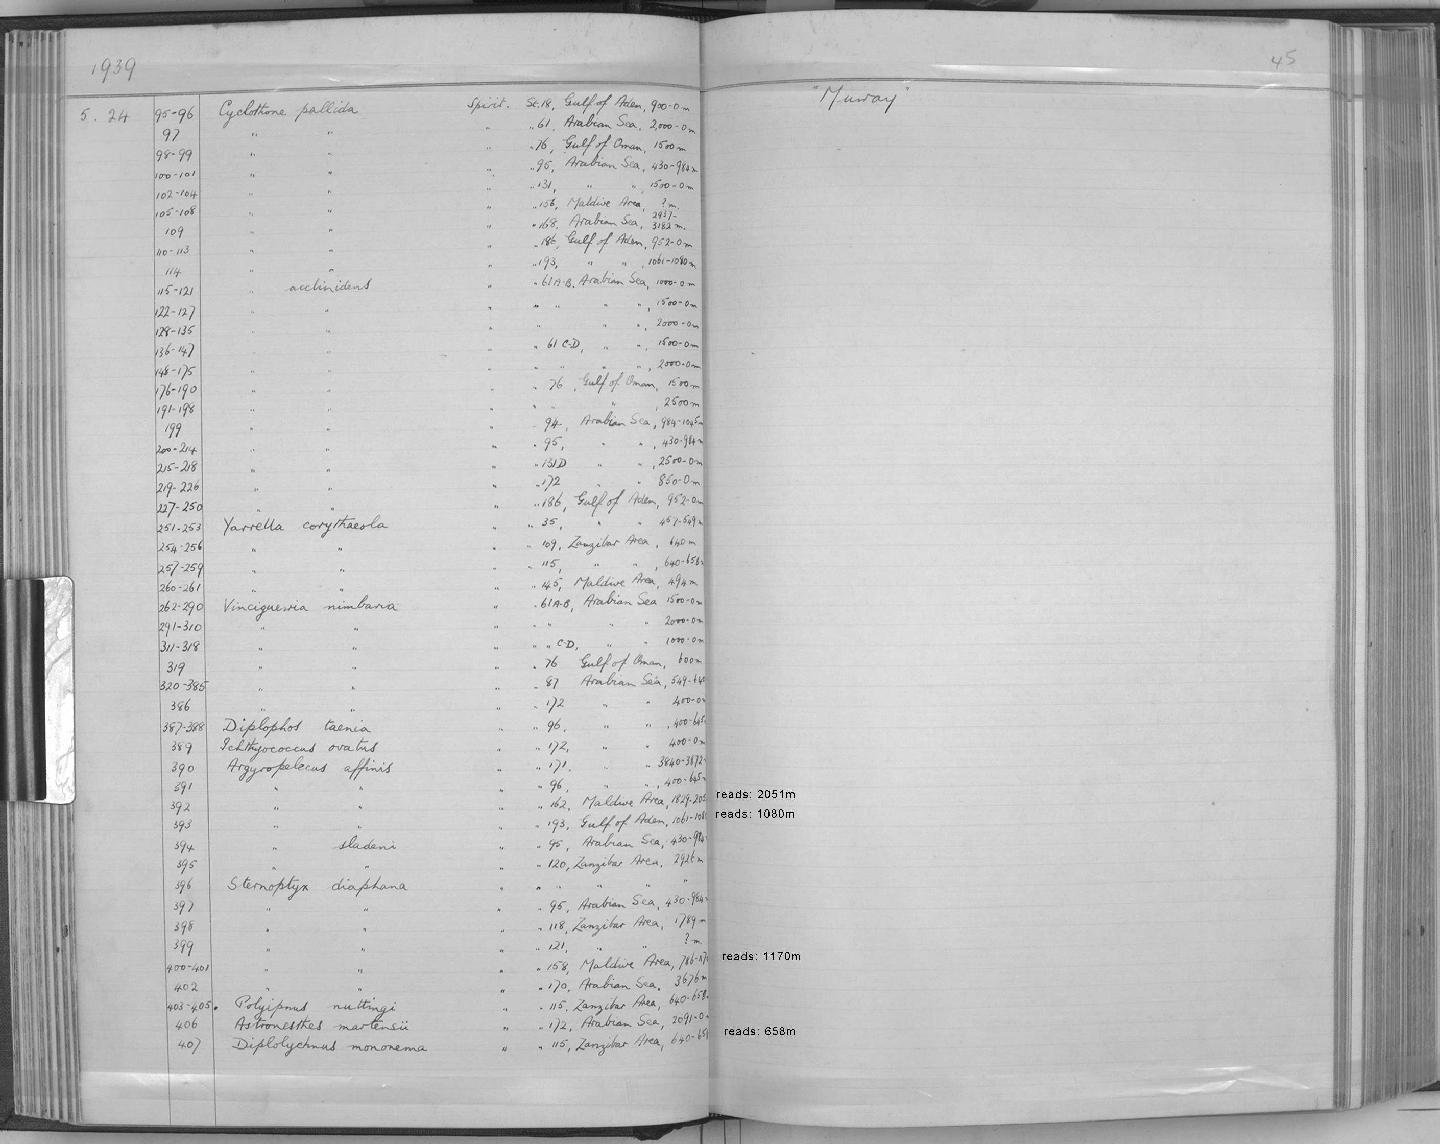 1939
45
"Murray"
5. 24 95-96 Cyclothone pallida Spirit. St. 18, Gulf of Aden, 900-0 m
97 " " " " 61, Arabian Sea, 2,000-0 m
98-99 " " " " 76, Gulf of Oman, 1500 m
100-101 " " " " 95, Arabian Sea, 430-984 m
102-104 " " " " 131, " " , 1500-0 m
105-108 " " " " 156, Maldive Area, ? m.
109 " " " " 168, Arabian Sea, 2937-3182 m.
110-113 " " " " 186, Gulf of Aden, 952-0 m
114 " " " " 193, " " , 1061-1080 m
115-121 " acclinidens " " 61 A-B, Arabian Sea, 1000-0 m
122-127 " " " " " " " , 1500-0 m
128-135 " " " " " " , 2000-0 m
136-147 " " " " 61 C-D, " " , 1500-0 m
148-175 " " " " " " " , 2000-0 m
176-190 " " " " 76, Gulf of Oman, 1500 m
191-198 " " " " " " , 2500 m
199 " " " " 94, Arabian Sea, 984-1045 m
200-214 " " " " 95, " " , 430-984 m
215-218 " " " " 131D " " , 2500-0 m
219-226 " " " " 172 " " 850-0 m
227-250 " " " " 186, Gulf of Aden, 952-0 m
251-253 Yarrella corythaeola " " 35, " " 457-549 m
254-256 " " " " 109, Zanzibar Area, 640 m
257-259 " " " " 115, " " , 640-658
260-261 " " " " 145, Maldive Area, 494 m
262-290 Vinciguerria nimbaria " " 61 A-B, Arabian Sea 1500-0 m
291-310 " " " " " " " 2000-0 m
311-318 " " " " " C-D, " " 1000-0 m
319 " " " " 76 Gulf of Oman, 600 m
320-385 " " " " 87 Arabian Sea, 549-640
386 " " " " 172 " " 400-0 m
387-388 Diplophos taenia " " 96, " " , 400-645
389 Ichthyococcus ovatus " " 172, " " 400-0 m
390 Argyropelecus affinis " " 171, " " 3840-3872
391 " " " " 96, " " , 400-645 m
392 " " " " 162, Maldive Area, 1829-205 reads: 2051m
393 " " " " 193, Gulf of Aden, 1061-108 reads: 1080m
394 " sladeni " " 95, Arabian Sea, 430-984
395 " " " " 120, Zanzibar Area, 2926 m
396 Sternoptyx diaphana " " " " " "
397 " " " " 95, Arabian Sea, 430-984
398 " " " " 118, Zanzibar Area, 1789 m
399 " " " " 121, " " ? m.
400-401 " " " " 158, Maldive Area, 786-117 reads: 1170m
402 " " " " 170, Arabian Sea, 3676 m
403-405. Polyipnus nuttingi " " 115, Zanzibar Area, 640-658
406 Astronesthes martensii " " 172, Arabian Sea, 2091-0 m
407 Diplolychnus mononema " " 115, Zanzibar Area, 640-65 reads: 658m